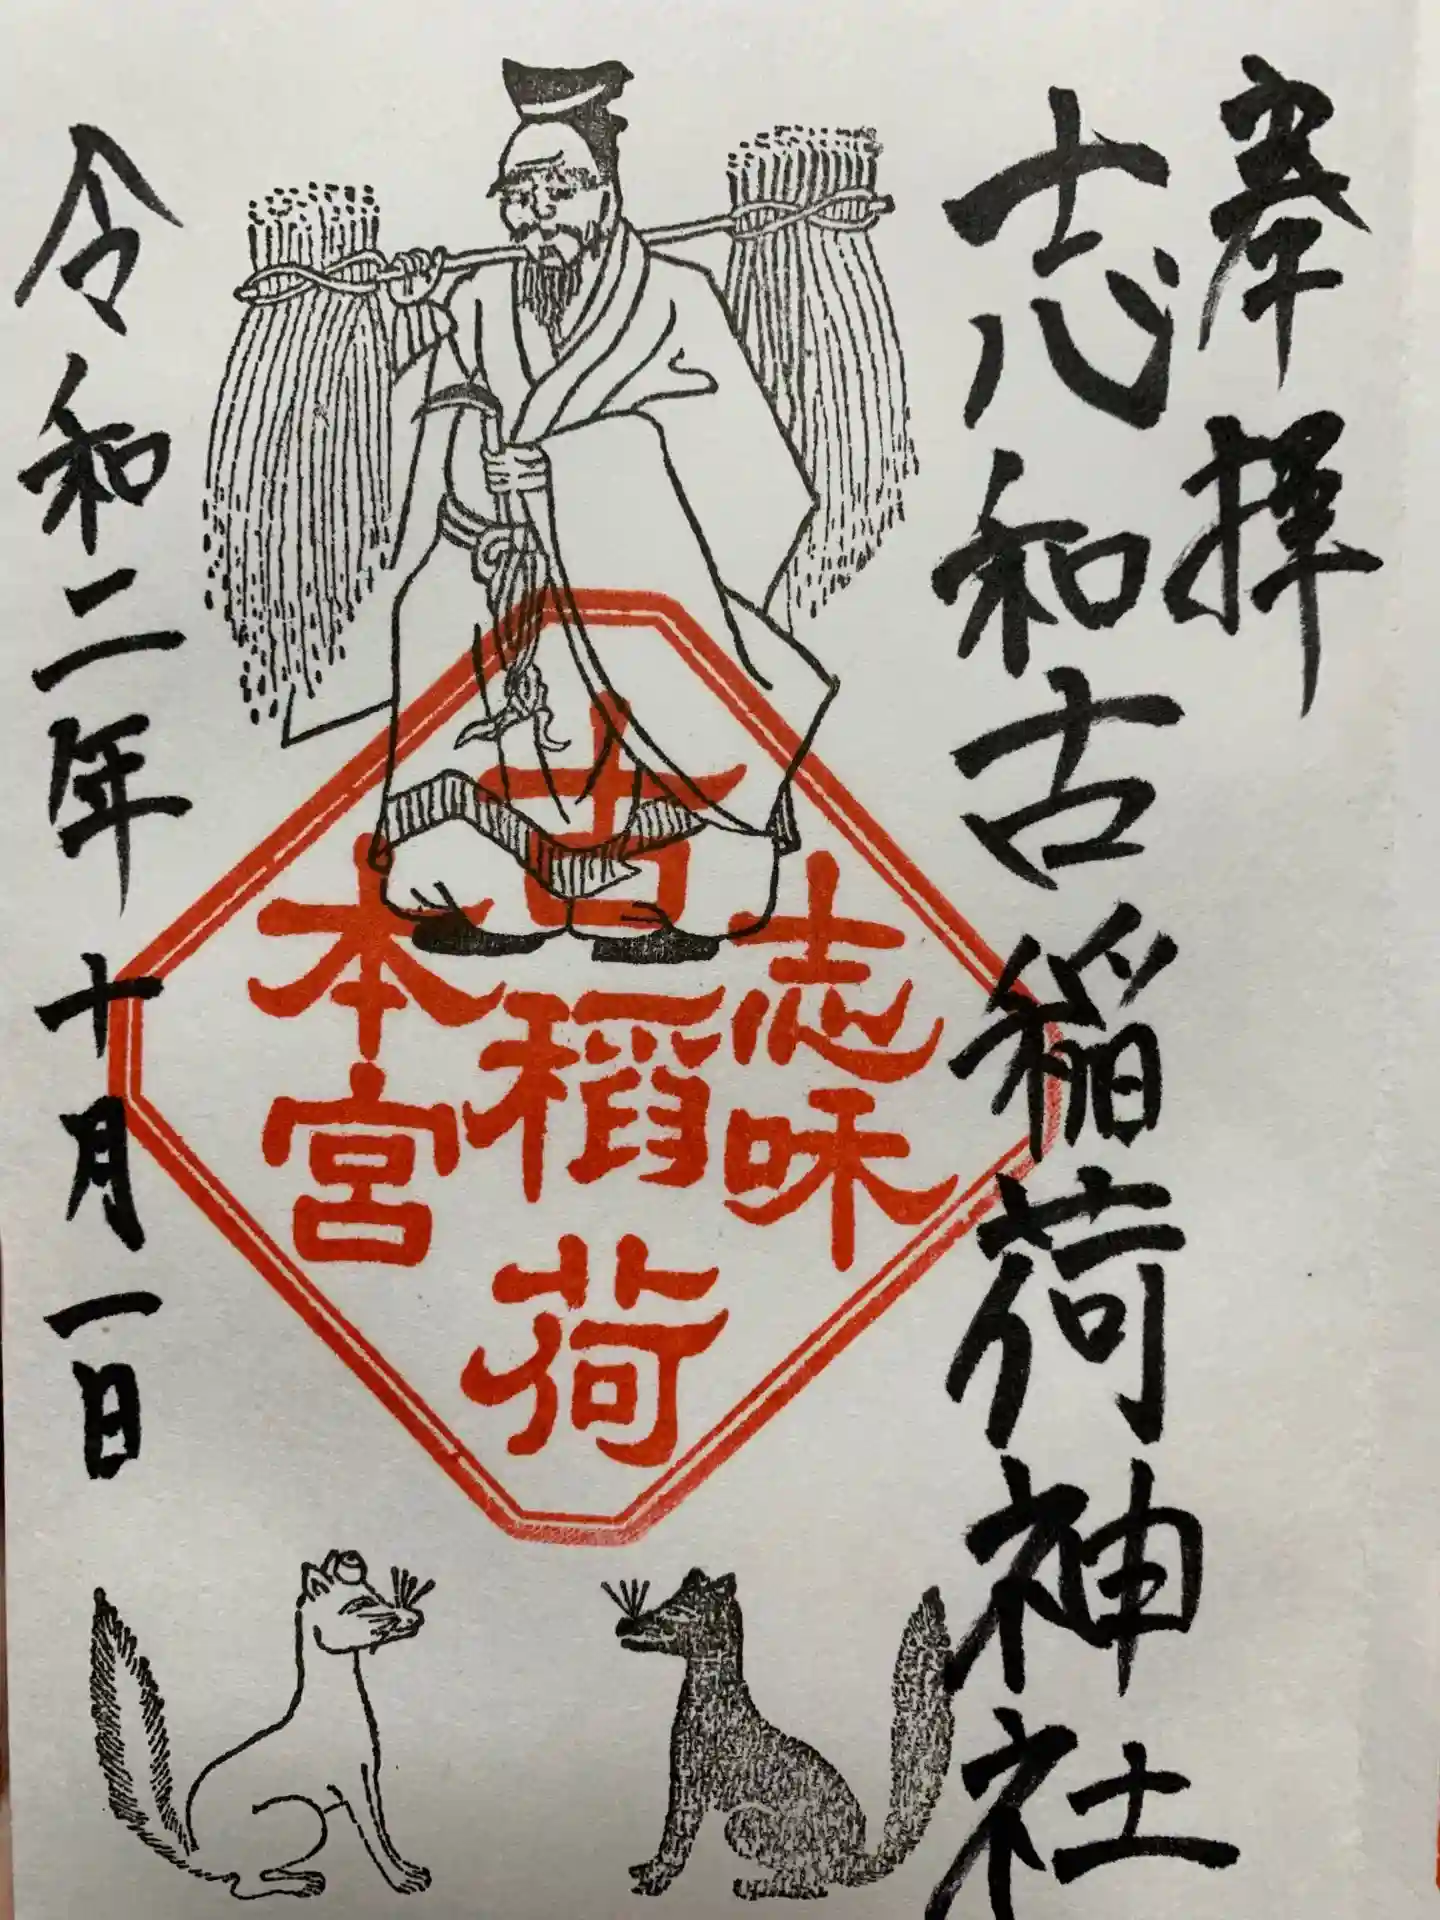 奉拝
志和古稲荷神社
志味
古稻荷
本宮
令和二年十月一日